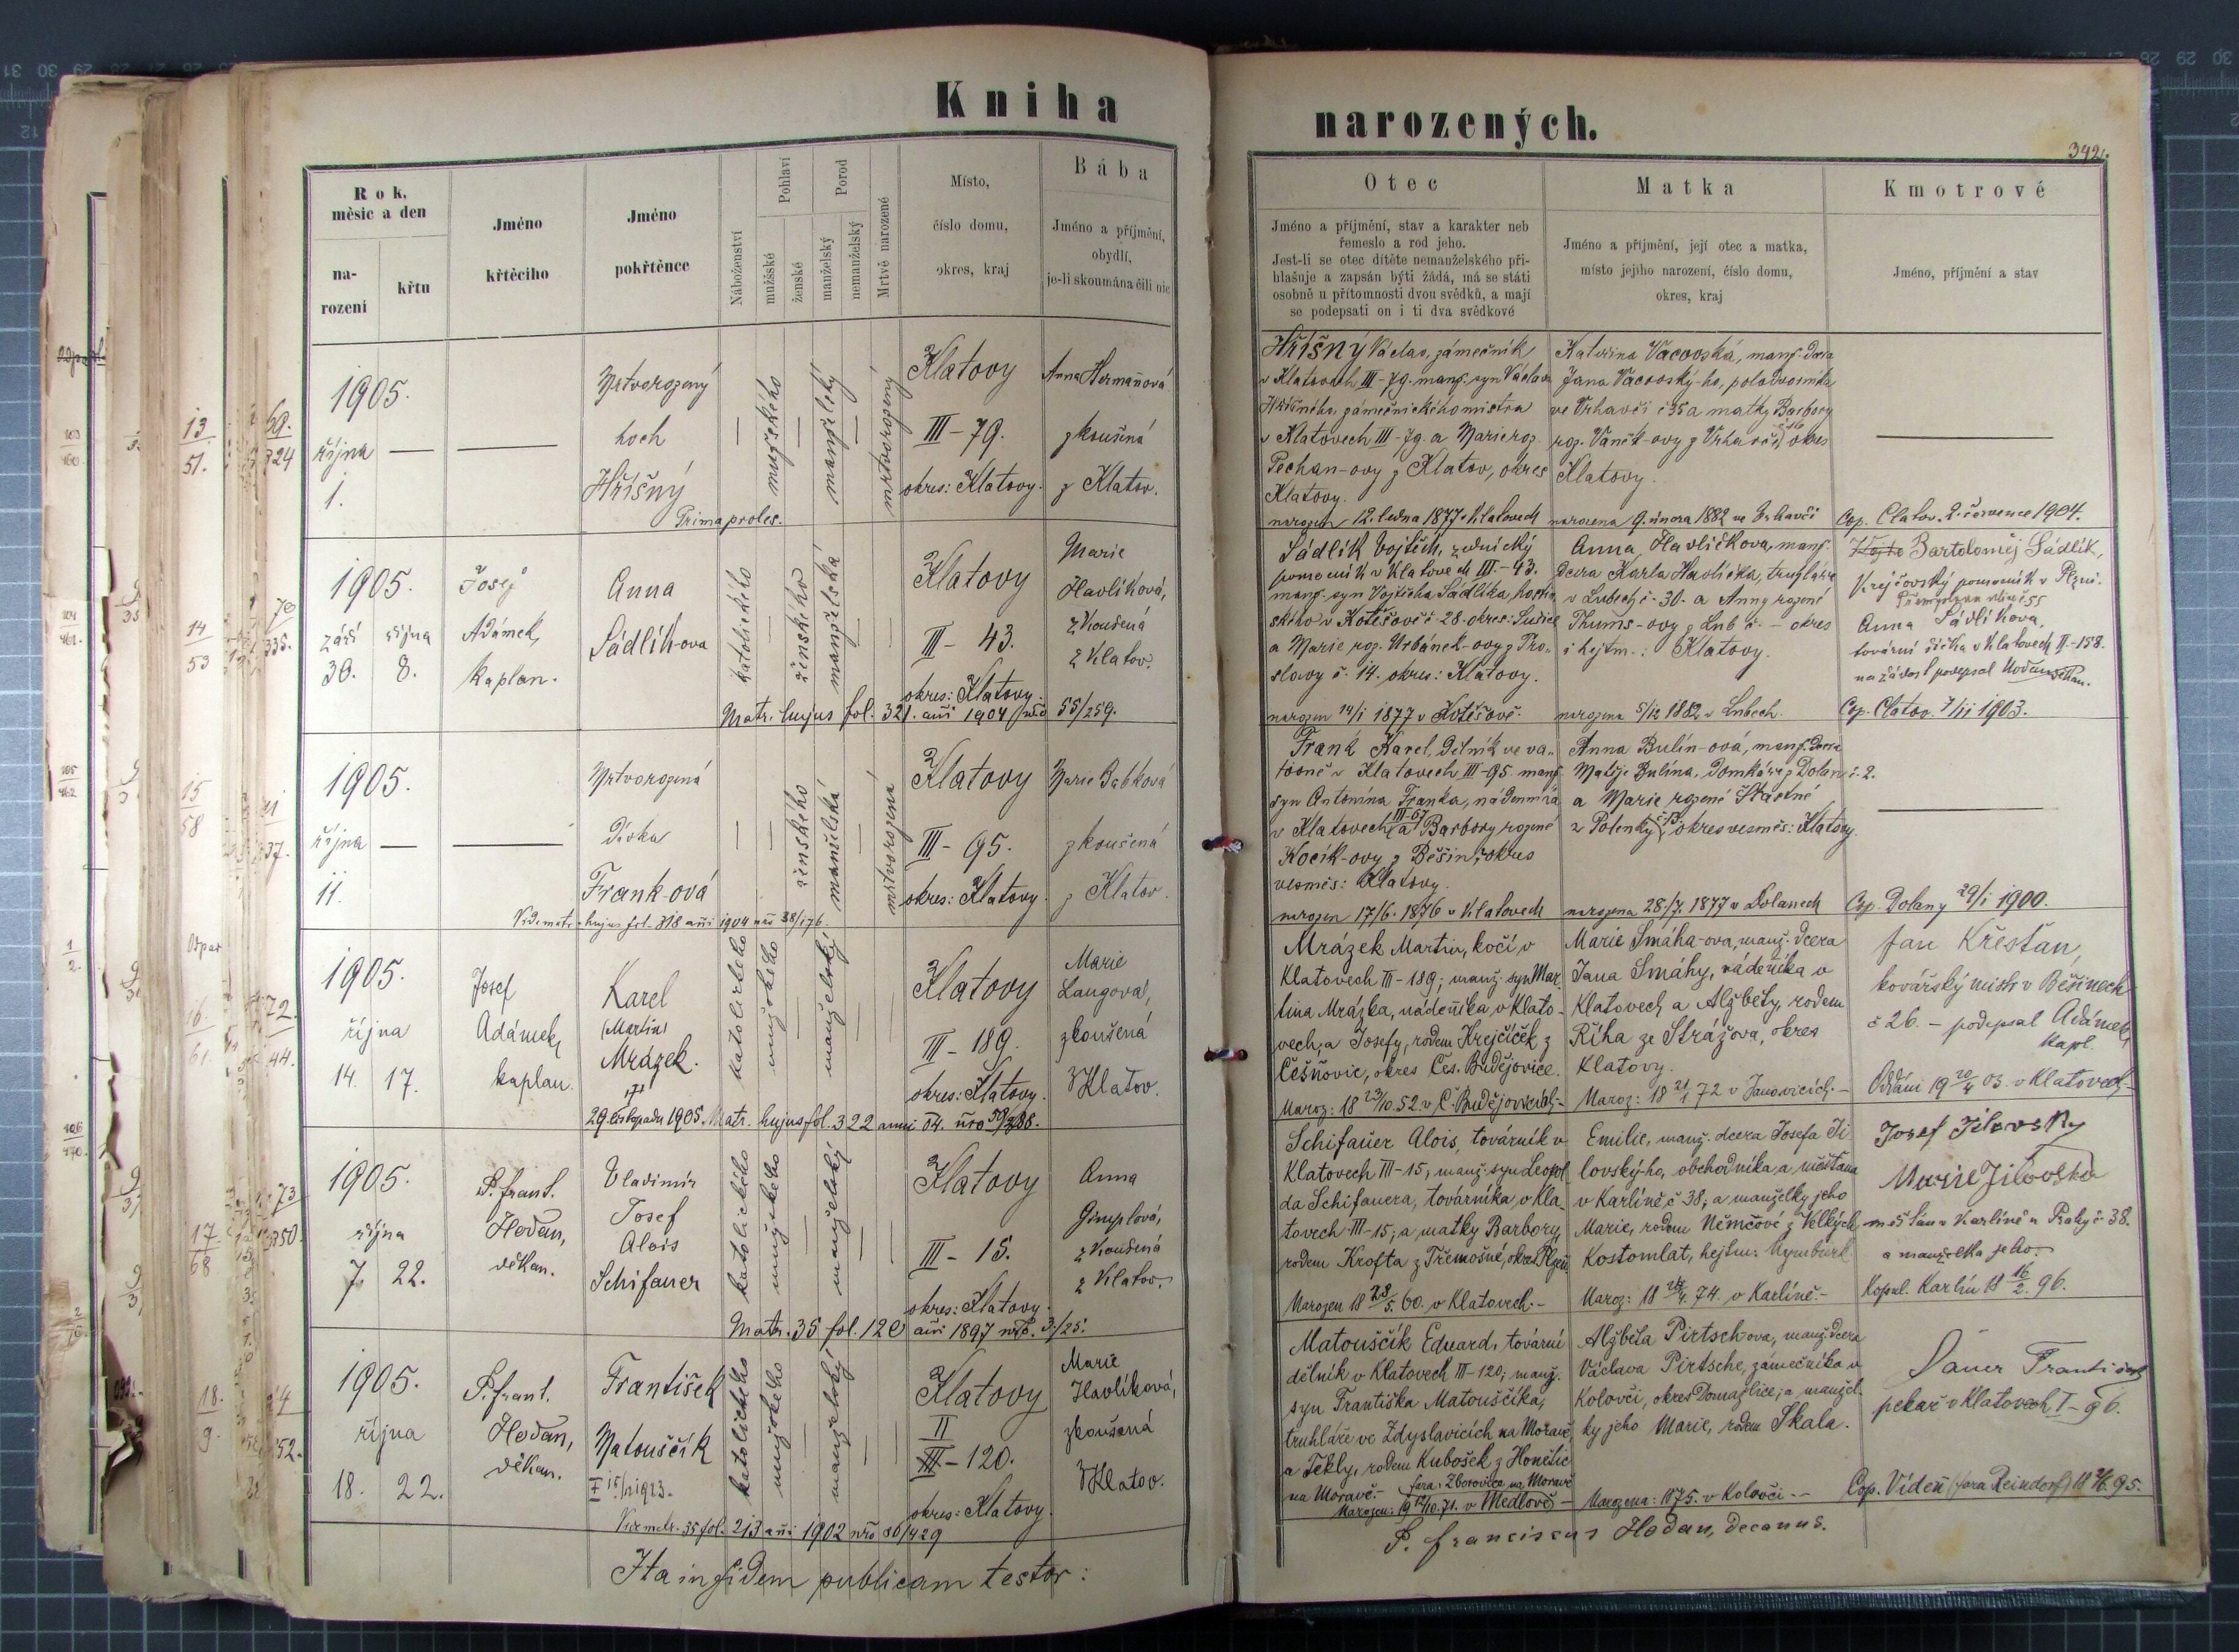 Kniha
narozených.
342.
Rok.
měsíc a den
na-
rození
křtu
Jméno
křtěcího
Jméno
pokřtěnce
Náboženství
Pohlaví
mužské
ženské
Porod
manželský
nemanželský
Mrtvě narozené
Místo,
číslo domu,
okres, kraj
Bába
Jméno a příjmění,
obydlí,
je-li skoumána čili nic
Otec
Jméno a příjmění, stav a karakter neb
řemeslo a rod jeho.
Jest-li se otec dítěte nemanželského při-
hlašuje a zapsán býti žádá, má se státi
osobně u přítomnosti dvou svědků, a mají
se podepsati on i ti dva svědkové
Matka
Jméno a příjmění, její otec a matka,
místo jejího narození, číslo domu,
okres, kraj
Kmotrové
Jméno, příjmění a stav
1905.
října
1.
Mrtvorozený
hoch
Hříšný
Prima proles.
mužského
manželský
mrtvorozený
Klatovy
III-79.
okres: Klatovy.
Anna Hermaňová
zkoušená
z Klatov.
Hříšný Václav, zámečník
v Klatovech III-79. manž. syn Václava
Hříšného, zámečnického mistra
v Klatovech III-79. a Marie roz.
Pechan-ovy z Klatov, okres
Klatovy.
narozen 12. ledna 1877 v Klatovech
Kateřina Vacovská, manž. dcera
Jana Vacovský-ho, polodvorníka
ve Vrhavči č 35 a matky Barbory
roz. Vaněk-ovy z Vrhavče, okres
Klatovy.
narozena 9. února 1882 ve Vrhavči
Cop. Clatov. 2. července 1904.
1905.
září října
30. 8.
Josef
Adámek,
kaplan.
Anna
Sádlík-ova
katolického
ženského
manželská
Klatovy
III-43.
okres: Klatovy.
Marie
Havlíková,
zkoušená
z Klatov.
Matr. hujus fol. 321. ani 1904 nro 55/259.
Sádlík Vojtěch, zednický
pomocník v Klatovech III-43.
manž. syn Vojtěcha Sádlíka, hostin
ského v Kotěšově č 28. okres: Sušice
a Marie roz. Urbánek-ovy z Tro-
slavy č. 14. okres: Klatovy.
narozen 14/1 1877 v Kotěšově.
Anna Havlíčkova, manž.
dcera Karla Havlíčka, truhláře
v Lubech č. 30. a Anny rozené
Thums-ovy z Lub č. - okres
i hejtm.: Klatovy.
narozena 5/12 1882 v Lubech.
Bartoloměj Sádlík,
Krejčovský pomocník v Plzni.
Anna Sádlíkova,
tovární šička v Klatovech II-158.
na žádost podepsal Hodan děkan.
Cop. Clatov. 7/11 1903.
1905.
října
11.
Mrtvorozená
dívka
Frank-ová
ženského
manželská
mrtvorozená
Klatovy
III-95.
okres: Klatovy.
Marie Babková
zkoušená
z Klatov.
Vide matr. hujus fol. 318 ani 1904 nro 38/176.
Frank Karel, dělník ve va-
tovně v Klatovech III-95. manž.
syn Antonína Franka, nádenníka
v Klatovech III-67 a Barbory rozené
Kocík-ovy z Běšin, okres
vesměs: Klatovy.
narozen 17/6. 1876 v Klatovech
Anna Bulín-ová, manž. dcera
Matěje Bulína, domkáře z Dolan č. 2.
a Marie rozené Šťastné
z Polenky, okres vesměs: Klatovy.
narozena 28/7. 1877 v Dolanech
Cop. Dolany 29/1 1900.
1905.
října
14. 17.
Josef
Adámek,
kaplan.
Karel
(Martin)
Mrázek.
29. listopadu 1905. Matr. hujus fol. 322 anni 04. nro
katolického
mužského
manželský
Klatovy
III-189.
okres: Klatovy.
Marie
Langova,
zkoušená
z Klatov.
Mrázek Martin, kočí v
Klatovech III-189; manž. syn Mar-
tina Mrázka, nádeníka v Klato-
vech, a Josefy, rodem Krejčíček z
Češňovic, okres Čes. Budějovice.
Naroz: 18 23/10. 52. v Č. Budějovicích.-
Marie Smáha-ova, manž. dcera
Jana Smáhy, nádeníka v
Klatovech a Alžběty, rodem
Říha ze Strážova, okres
Klatovy.
Naroz: 18 21/1 72 v Janovicích.-
Jan Křešťan,
kovářský mistr v Běšinech
č 26. - podepsal Adámek,
kapl.
Oddáni 19 20/4 03. v Klatovech.-
1905.
října
7. 22.
P. Frant.
Hodan,
děkan.
Vladimír
Josef
Alois
Schifauer
katolického
mužského
manželský
Klatovy
III-15.
okres: Klatovy.
Anna
Gimplová,
zkoušená
z Klatov.
Matr. 35 fol. 120 ani 1897 nro. 3/25.
Schifauer Alois, továrník v
Klatovech III-15; manž. syn Leopol-
da Schifauera, továrníka, v Kla-
tovech III-15; a matky Barbory,
rodem Krofta z Třemošné, okres Plzeň.
Narozen 18 28/5. 60. v Klatovech.-
Emilie, manž. dcera Josefa Ji-
lovský-ho, obchodníka, a měšťana
v Karlíně č 38; a manželky jeho
Marie, rodem Němčové z Velkých
Kostomlat, hejtm: Nymburk
Naroz: 18 24/4. 74. v Karlíně.-
Josef Jilovský
Marie Jilovská
měšťan v Karlíně u Prahy č 38.
a manželka jeho.
Kopul. Karlín 18 16/2. 96.
1905.
října
18. 22.
P. Frant.
Hodan,
děkan.
František
Matouščík
katolického
mužského
manželský
Klatovy
II
III-120.
okres: Klatovy.
Marie
Havlíková,
zkoušená
z Klatov.
Vide matr. 35 fol. 213 ani 1902 nro 86/429
Matouščík Eduard, tovární
dělník v Klatovech III-120; manž.
syn Františka Matouščíka,
truhláře ve Zdyslavicích na Moravě,
a Tekly, rodem Kubošek z Honětic
na Moravě.- fara: Zborovice na Moravě
Narozen: 19 12/10. 71. v Medlově.-
Alžběta Pirtsch-ova, manž. dcera
Václava Pirtsche, zámečníka v
Kolovči, okres Domažlice; a manžel-
ky jeho Marie, rodem Skala.
Narozena: 1875. v Kolovči.-
Sauer František
pekař v Klatovech I-96.
Cop. Vídeň (fara Reindorf)
Ita in fidem publicam testor:
P. Franciscus Hodan, decanus.